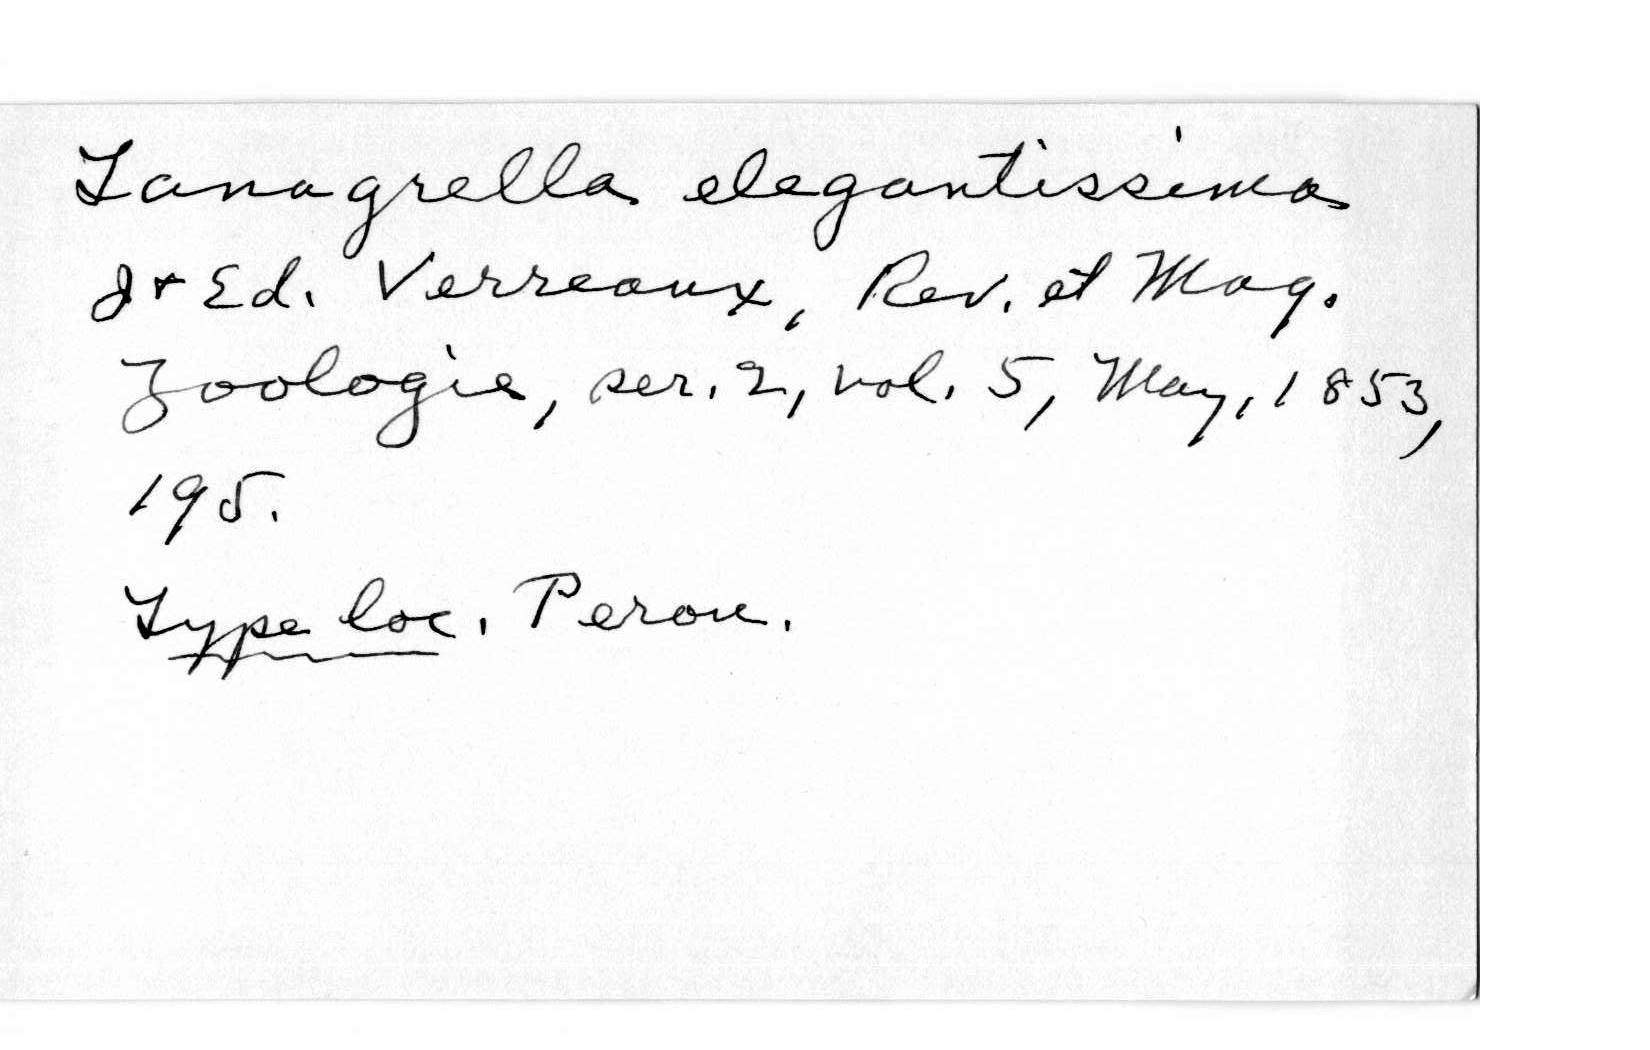 Tanagrella elegantissima
J + Ed. Verreaux, Rev. et Mag.
Zoologie, ser. 2, vol. 5, May, 1853,
195.
Type loc. Perou.